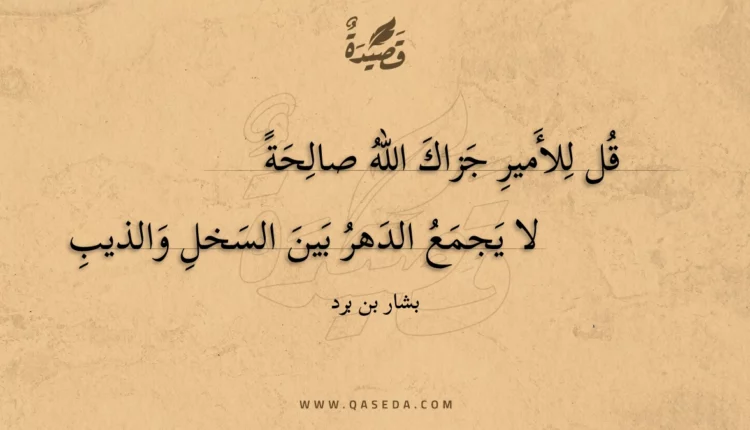 قَصِيْدَةٌ
قُل لِلأَميرِ جَزاكَ اللَهُ صالِحَةً
لا يَجمَعُ الدَهرُ بَينَ السَخلِ وَالذيبِ
بشار بن برد
WWW.QASEDA.COM